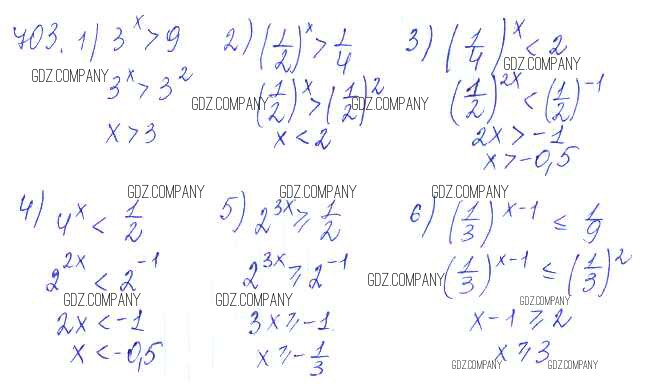 703. 1) 3^x > 9
GDZ.COMPANY
3^x > 3^2
x > 3
2) (1/2)^x > 1/4
GDZ.COMPANY GDZ.COMPANY
(1/2)^x > (1/2)^2
x < 2
3) (1/4)^x < 2
GDZ.COMPANY
(1/2)^2x < (1/2)^-1
2x > -1
x > -0,5
GDZ.COMPANY
4) 4^x < 1/2
2^2x < 2^-1
GDZ.COMPANY
2x < -1
x < -0,5
GDZ.COMPANY
5) 2^3x ⩾ 1/2
2^3x ⩾ 2^-1
GDZ.COMPANY
3x ⩾ -1
x ⩾ -1/3
GDZ.COMPANY
6) (1/3)^x-1 ≤ 1/9
GDZ.COMPANY
(1/3)^x-1 ≤ (1/3)^2
GDZ.COMPANY
x-1 ⩾ 2
x ⩾ 3
GDZ.COMPANY GDZ.COMPANY